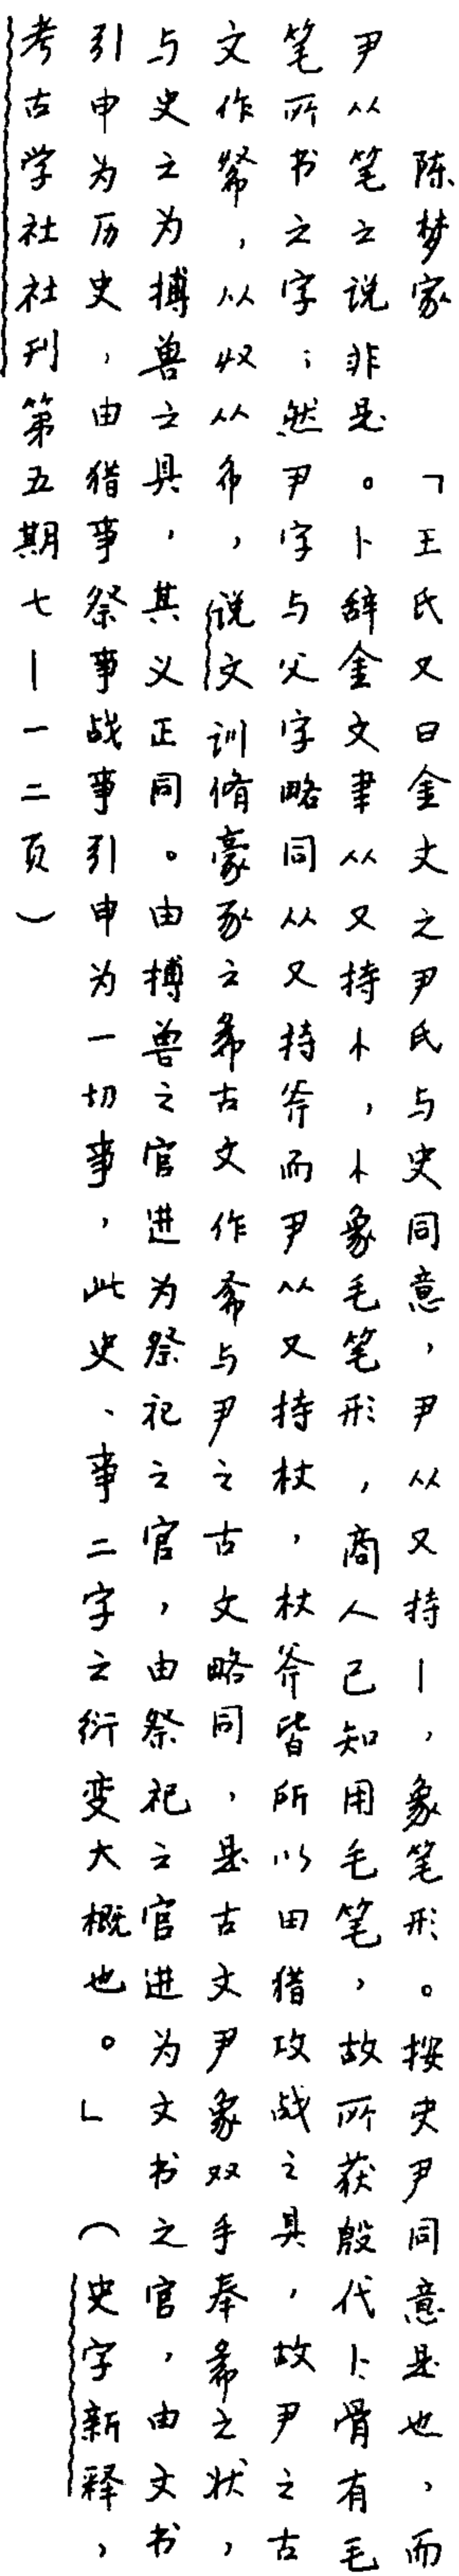 陈梦家　「王氏又曰金文之尹氏与史同意，尹从又持丨，象笔形。按史尹同意是也，而
尹从笔之说非是。卜辞金文聿从又持⺊，⺊象毛笔形，商人已知用毛笔，故所获殷代卜骨有毛
笔所书之字；然尹字与父字略同从又持斧而尹从又持杖，杖斧皆所以田猎攻战之具，故尹之古
文作，从収从㣇，说文训脩豪豕之㣇古文作与尹之古文略同，是古文尹象双手奉㣇之状，
与史之为搏兽之具，其义正同。由搏兽之官进为祭祀之官，由祭祀之官进为文书之官，由文书
引申为历史，由猎事祭事战事引申为一切事，此史、事二字之衍变大概也。」（史字新释，
考古学社社刊第五期七—一二页）